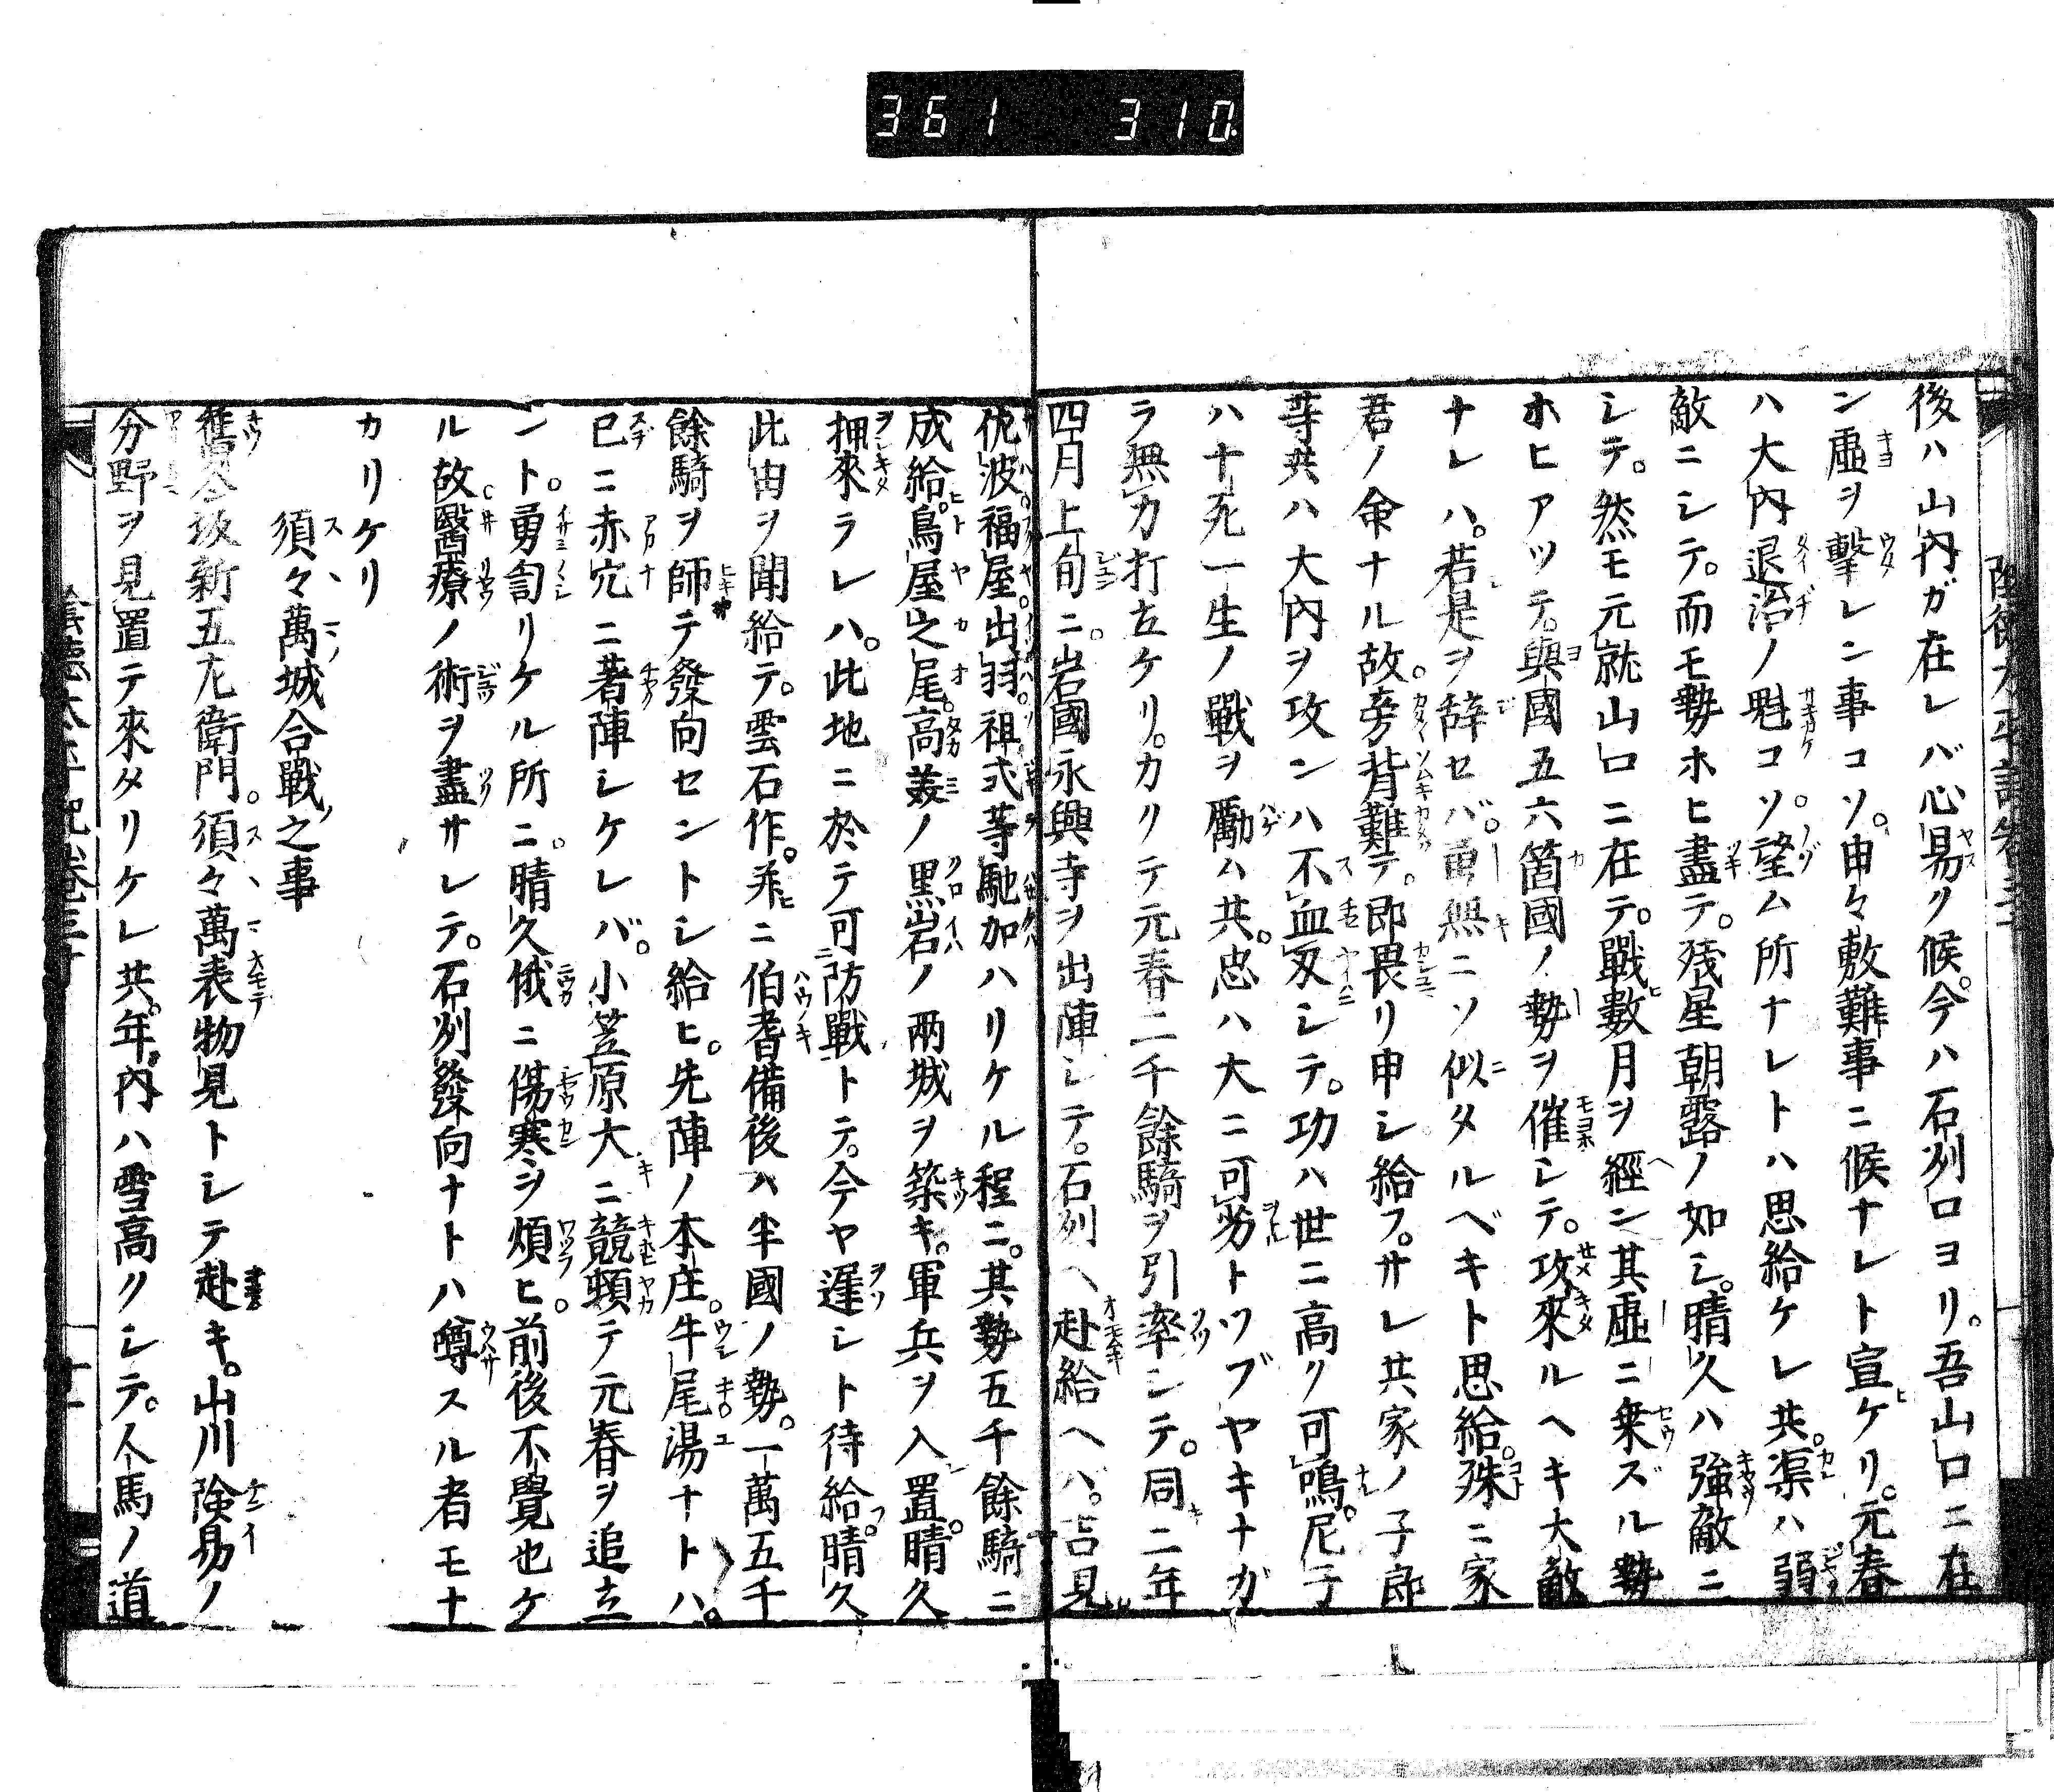 361 310
後ハ山内ガ在レバ心易ク候。今ハ石刕口ヨリ。吾山口ニ在
ン虚ヲ撃レン事コソ。由々敷難事ニ候ナレト宣ケリ。元春
ハ大内退治ノ魁コソ望ム所ナレトハ思給ケレ共。渠ハ弱
敵ニシテ。而モ勢ホヒ盡テ。残星朝露ノ如シ。晴久ハ強敵ニ
シテ。然モ元就山口ニ在テ。戰數月ヲ經ン其虚ニ乗ズル勢
ホヒアツテ。與國五六箇國ノ勢ヲ催シテ。攻來ルヘキ大敵
ナレハ。若是ヲ辞セバ。勇無ニソ似タルベキト思給。殊ニ家
君ノ命ナル故。旁背難テ。即畏リ申シ給フ。サレ共家ノ子郎
等共ハ大内ヲ攻ンハ不血刄シテ。功ハ世ニ高ク可鳴。尼子
ハ十死一生ノ戰ヲ勵ム共。忠ハ大ニ可劣トツブヤキナガ
ラ無力打立ケリ。カクテ元春二千餘騎ヲ引率シテ。同二年
四月上旬ニ。岩國永興寺ヲ出陣シテ。石刕ヘ赴給ヘハ。吉見
佐波。福屋。出羽。祖式等馳加ハリケル程ニ。其勢五千餘騎ニ
成給。鳥屋之尾。高美ノ黒岩ノ両城ヲ築キ。軍兵ヲ入置。晴久
押來ラレハ。此地ニ於テ可防戰トテ。今ヤ遅シト待給。晴久
此由ヲ聞給テ。雲石作。並ニ伯耆備後ハ半國ノ勢。一萬五千
餘騎ヲ師テ發向セントシ給ヒ。先陣ノ本庄。牛尾湯ナトハ。
已ニ赤穴ニ著陣シケレバ。小笠原大ニ競頓テ元春ヲ追立
ント。勇訇リケル所ニ。晴久俄ニ傷寒ヲ煩ヒ。前後不覺也ケ
ル故。醫療ノ術ヲ盡サレテ。石刕發向ナトハ噂スル者モナ
カリケリ
須々萬城合戰之事
坂新五左衛門。須々萬表物見トシテ赴キ。山川険易ノ
分野ヲ見置テ來タリケレ共。年内ハ雪高クシテ。人馬ノ道
陰德太平記卷三十